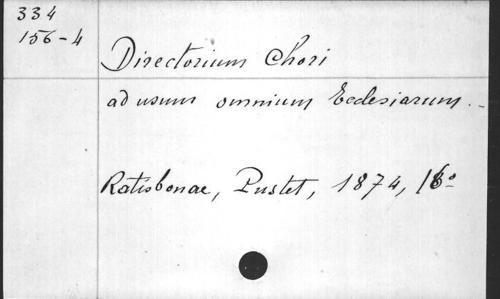 334
156-4
Directorium Chori
ad usum omnium Ecclesiarum.
Ratisbonae, Pustet, 1874, 16º